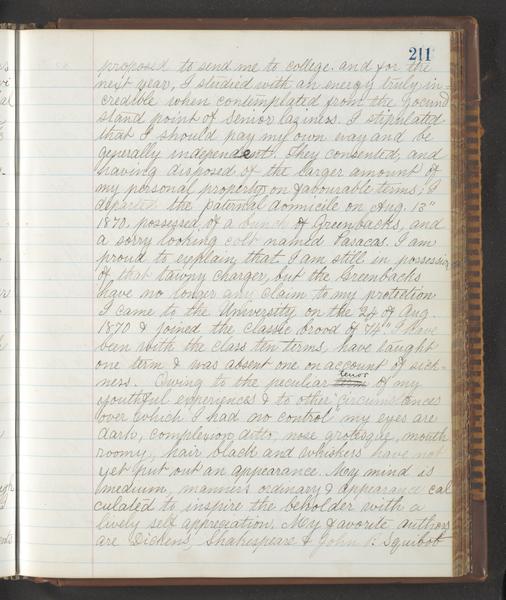 211
proposed to send me to college. and for the
next year, I studied with an energy truly in-
credible when contemplated from the
stand point of Senior laziness. I stipulated
that I should pay my own way and be
generally independent. They consented, and
having disposed of the larger amount of
my personal property on favourable terms, I
departed the paternal domicile on Aug. 13"
1870. possessed of a bunch of Greenbacks, and
a sorry looking colt named Paracas. I am
proud to explain that I am still in possession
of that tawny charger, but the Greenbacks
have no longer any claim to my protection
I came to the University on the 24 of Aug.
1870 & joined the classic brood of '74" I have
been with the class ten terms, have taught
one term & was absent one on account of sick-
ness. Owing to the peculiar tenor of my
youthful experiences & to other circumstances
over which I had no control my eyes are
dark, complexion ditto, nose grotesque, mouth
roomy, hair black and whiskers have not
yet put out an appearance. My mind is
medium, manners ordinary & appearance cal
culated to inspire the beholder with a
lively self appreciation. My favorite authors
are Dickens, Shakespeare & John P. Squibob